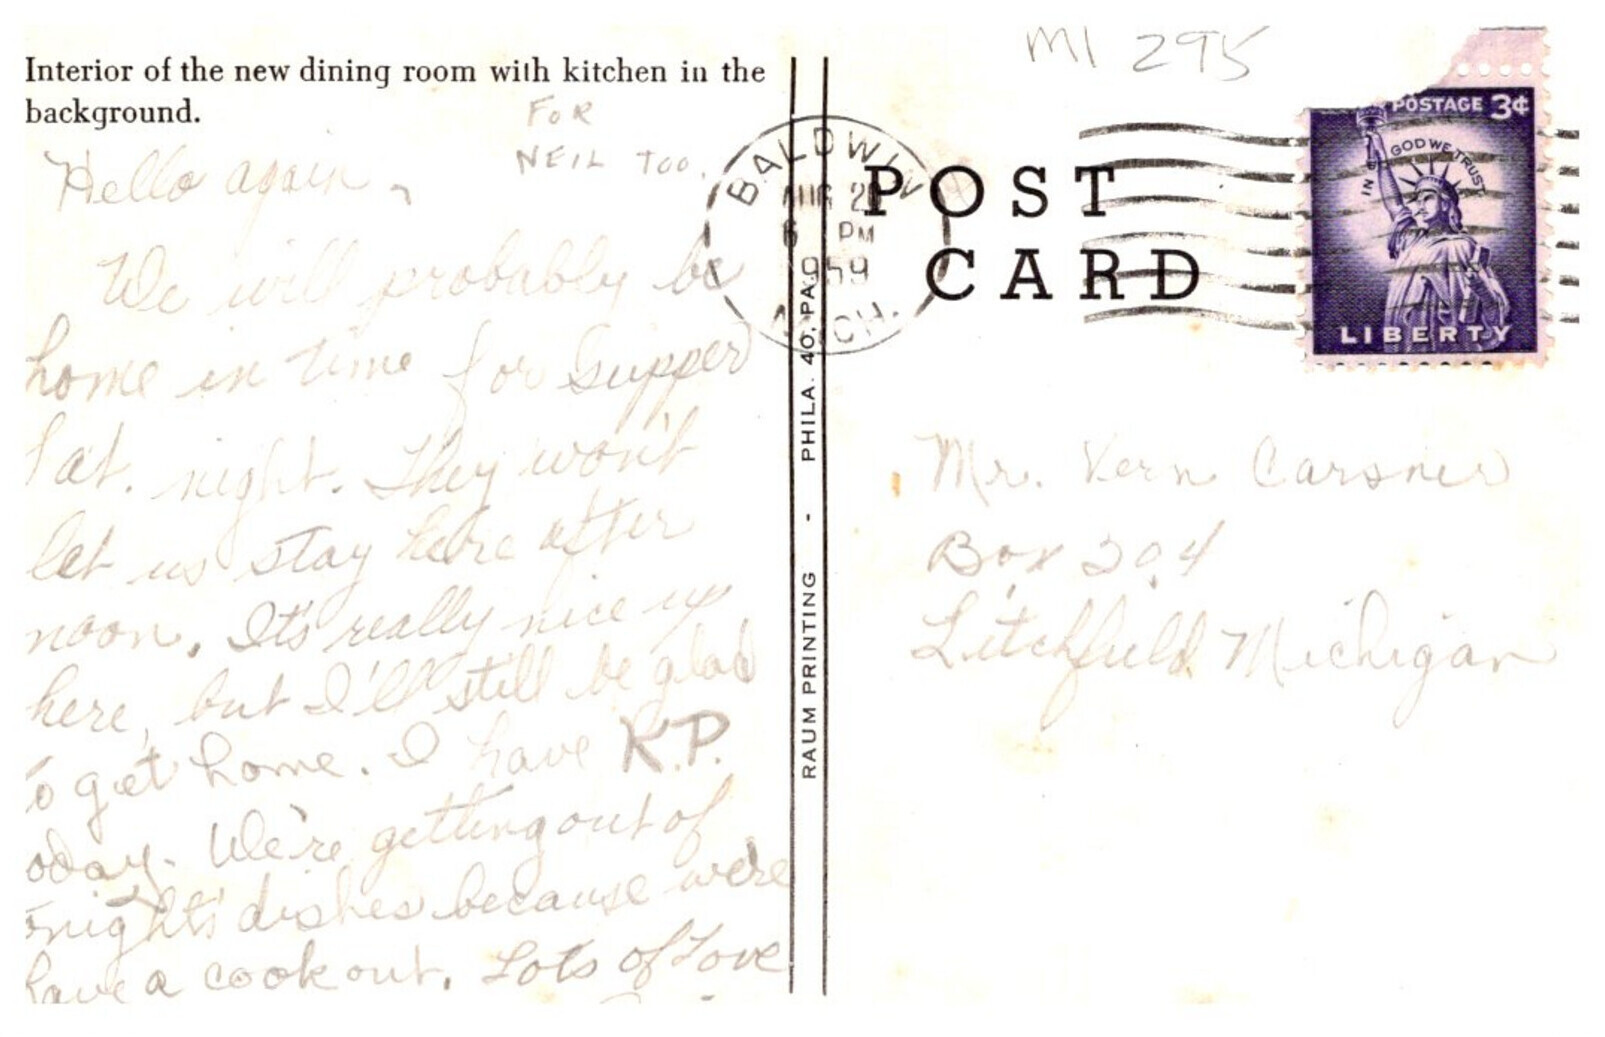 Interior of the new dining room with kitchen in the
background.
FOR
NEIL TOO.
Hello again,
We will probably be
home in time for supper
Sat. night. They won't
let us stay here after
noon. It's really nice up
here, but I'll still be glad
to get home. I have K.P.
today. We're getting out of
tonight's dishes because were
have a cook out. Lots of Love
RAUM PRINTING - PHILA. 40, PA.
MI 295
BALDWIN
AUG 2
6 PM
1959
MICH.
POST
CARD
POSTAGE 3¢
IN GOD WE TRUST
LIBERTY
Mr. Vern Carsner
Box 204
Litchfield Michigan